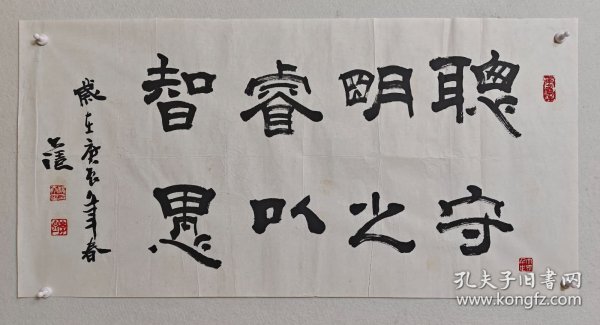 聰明睿智
守之以愚
歲在庚辰年春
孔夫子旧书网
www.kongfz.com